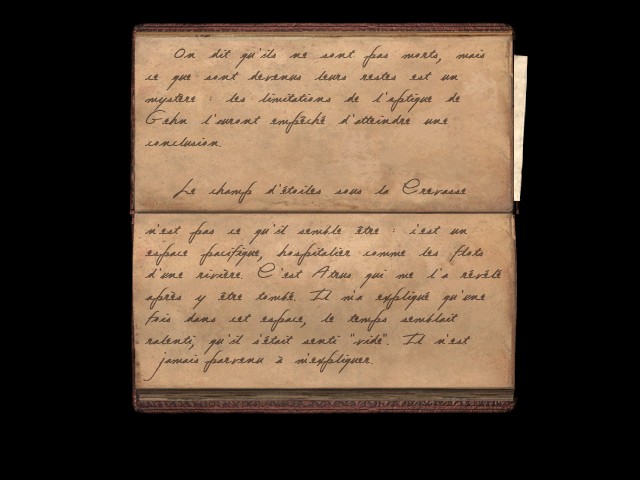 On dit qu'ils ne sont pas morts, mais
ce que sont devenus leurs restes est un
mystère : les limitations de l'optique de
Gehn l'auront empêché d'atteindre une
conclusion.
Le champ d'étoiles sous la Crevasse
n'est pas ce qu'il semble être : c'est un
espace pacifique, hospitalier comme les flots
d'une rivière. C'est Atrus qui me l'a révélé
après y être tombé. Il m'a expliqué qu'une
fois dans cet espace, le temps semblait
ralenti, qu'il s'était senti "vidé". Il n'est
jamais parvenu à m'expliquer.